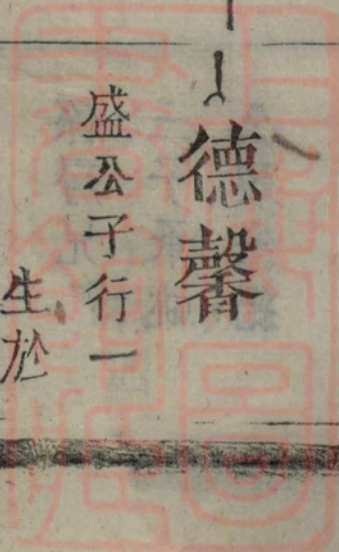 德馨
盛公子行一
生於